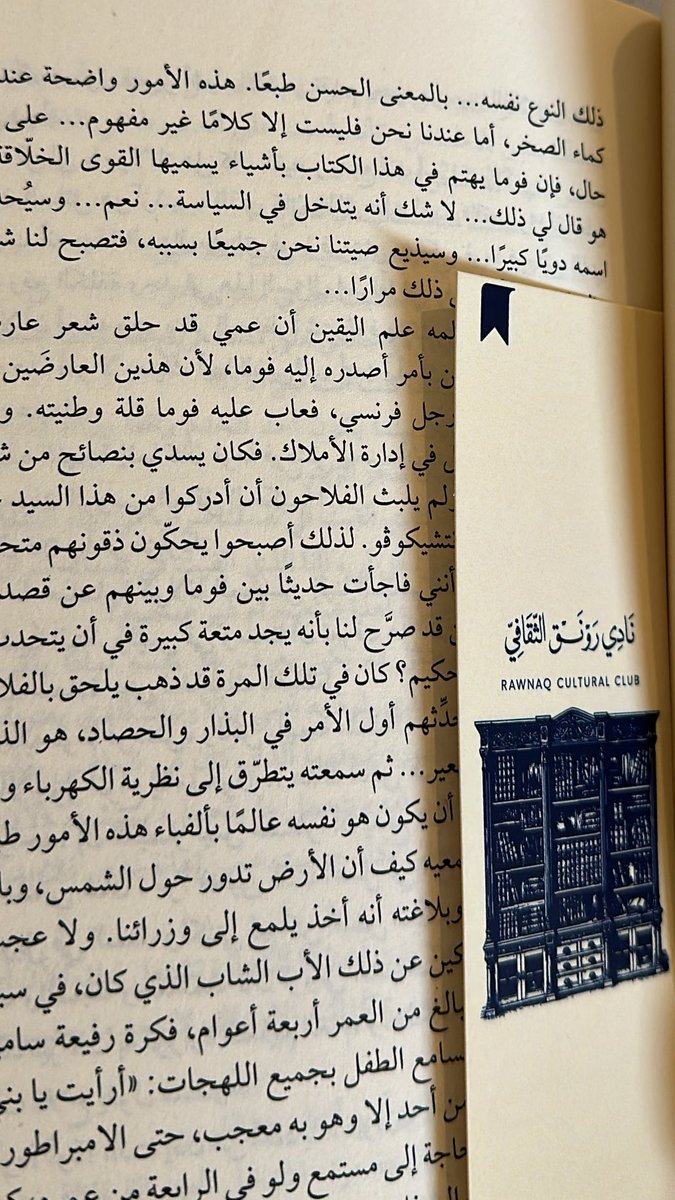 ذلك النوع نفسه... بالمعنى الحسن طبعًا. هذه الأمور واضحة عند
كماء الصخر، أما عندنا نحن فليست إلا كلامًا غير مفهوم... على
حال، فإن فوما يهتم في هذا الكتاب بأشياء يسميها القوى الخلّاقة
هو قال لي ذلك... لا شك أنه يتدخل في السياسة... نعم... وسيُحد
اسمه دويًا كبيرًا... وسيذيع صيتنا نحن جميعًا بسببه، فتصبح لنا
ذلك مرارًا...
علم اليقين أن عمي قد حلق شعر
بأمر أصدره إليه فوما، لأن هذين العارضَين
رجل فرنسي، فعاب عليه فوما قلة وطنيته.
في إدارة الأملاك. فكان يسدي بنصائح من
ولم يلبث الفلاحون أن أدركوا من هذا السيد
تشيكوڤو. لذلك أصبحوا يحكّون ذقونهم
أنني فاجأت حديثًا بين فوما وبينهم عن
قد صرَّح لنا بأنه يجد متعة كبيرة في أن يتحدث
حكيم؟ كان في تلك المرة قد ذهب يلحق
حدِّثهم أول الأمر في البذار والحصاد، هو
عير... ثم سمعته يتطرّق إلى نظرية الكهرباء
أن يكون هو نفسه عالمًا بألفباء هذه الأمور
معيه كيف أن الأرض تدور حول الشمس،
وبلاغته أنه أخذ يلمع إلى وزرائنا. ولا
كين عن ذلك الأب الشاب الذي كان، في
بالغ من العمر أربعة أعوام، فكرة رفيعة
سامع الطفل بجميع اللهجات: «أرأيت يا بني
من أحد إلا وهو به معجب، حتى الامبراطور
حاجة إلى مستمع ولو في الرابعة من
نَادِي رَوْنَق الثَّقَافِيّ
RAWNAQ CULTURAL CLUB